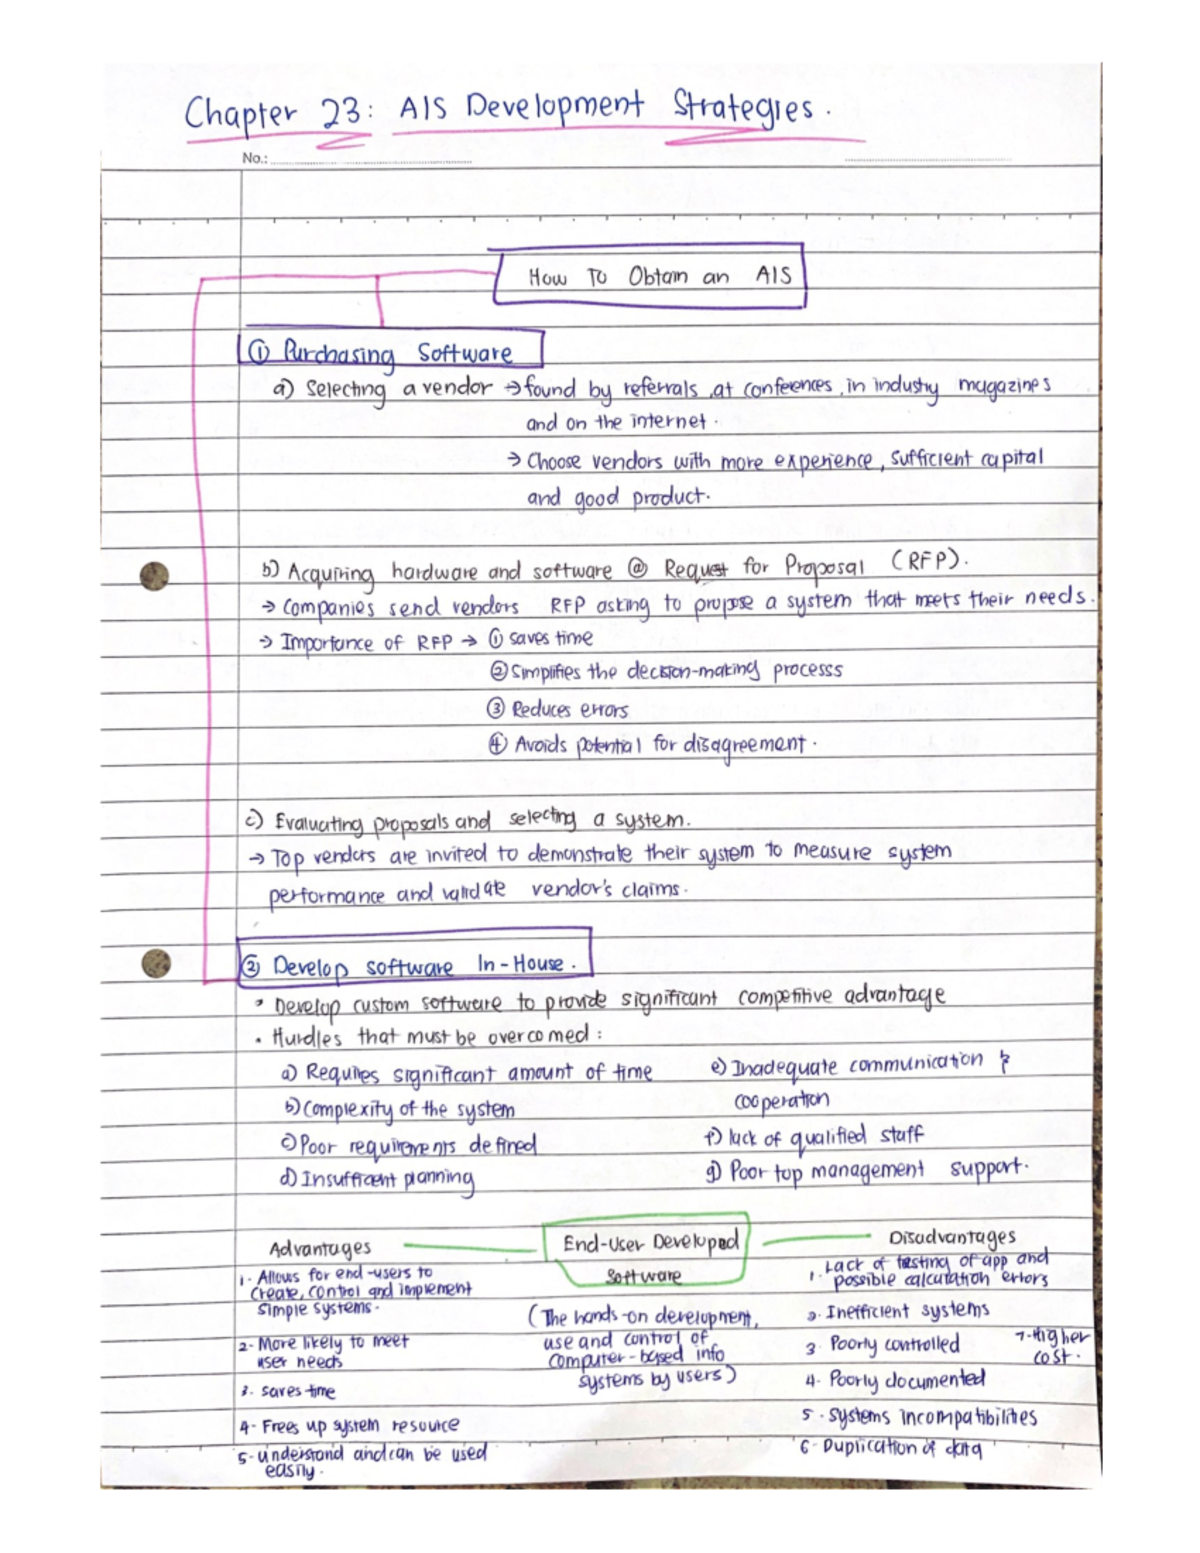 Chapter 23: AIS Development Strategies.
No.:
How To Obtain an AIS
① Purchasing Software
a) Selecting a vendor → found by referrals, at conferences, in industry magazines
and on the internet.
→ Choose vendors with more experience, sufficient capital
and good product.
b) Acquiring hardware and software @ Request for Proposal (RFP).
→ Companies send vendors RFP asking to propose a system that meets their needs.
→ Importance of RFP → ① saves time
② Simplifies the decision-making processs
③ Reduces errors
④ Avoids potential for disagreement.
c) Evaluating proposals and selecting a system.
→ Top vendors are invited to demonstrate their system to measure system
performance and validate vendor's claims.
② Develop software In-House.
• Develop custom software to provide significant competitive advantage
• Hurdles that must be overcomed:
a) Requires significant amount of time
b) Complexity of the system
c) Poor requirements defined
d) Insufficient planning
e) Inadequate communication &
cooperation
f) lack of qualified staff
g) Poor top management support.
Advantages
1. Allows for end-users to
create, control and implement
simple systems.
2. More likely to meet
user needs
3. saves time
4. Frees up system resource
5. understand and can be used
easily.
End-User Developed
Software
(The hands-on development,
use and control of
computer-based info
systems by users)
Disadvantages
1. Lack of testing of app and
possible calculation errors
2. Inefficient systems
3. Poorly controlled
4. Poorly documented
5. Systems incompatibilities
6. Duplication of data
7. Higher
cost.